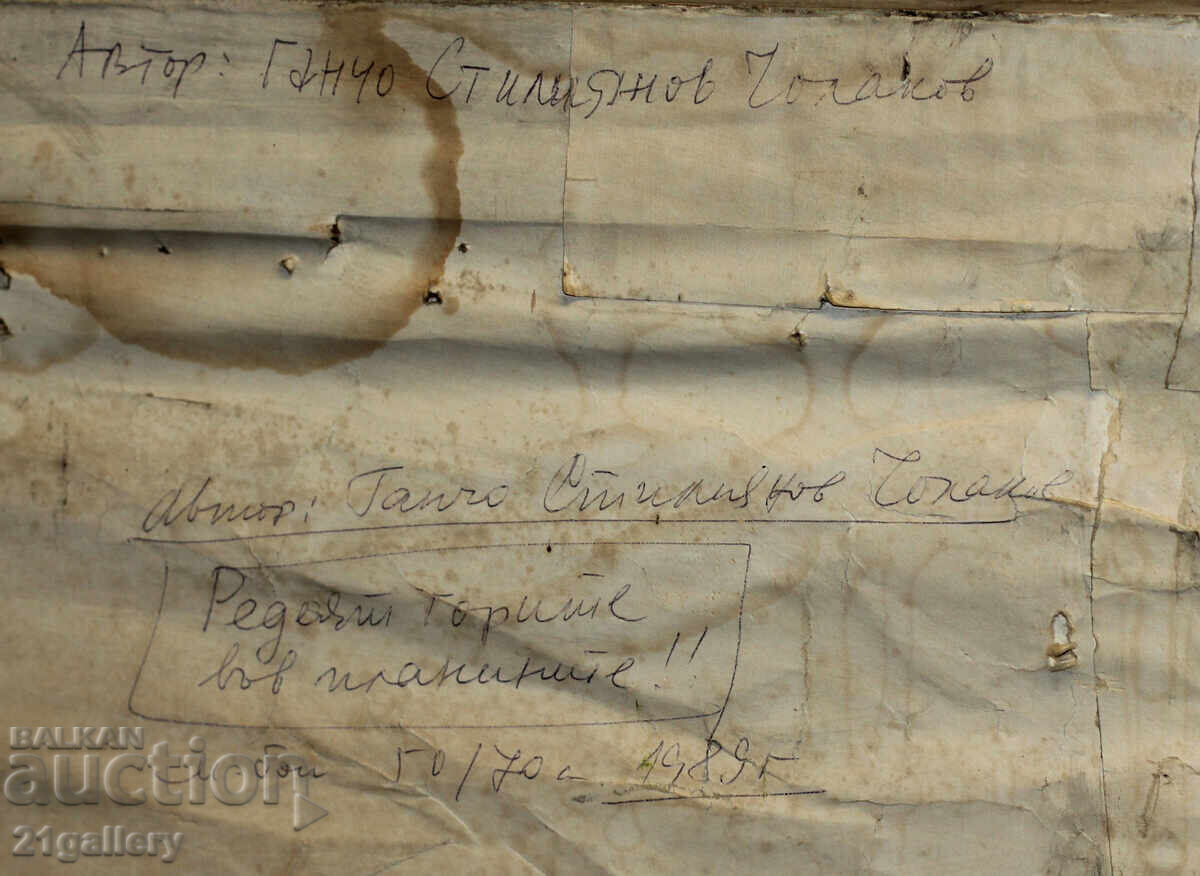 Автор: Ганчо Стилиянов Чолаков
Автор: Ганчо Стилиянов Чолаков
Редоят горите
във планините!!
м. бои 50/70 1989г
BALKAN
auction
21gallery